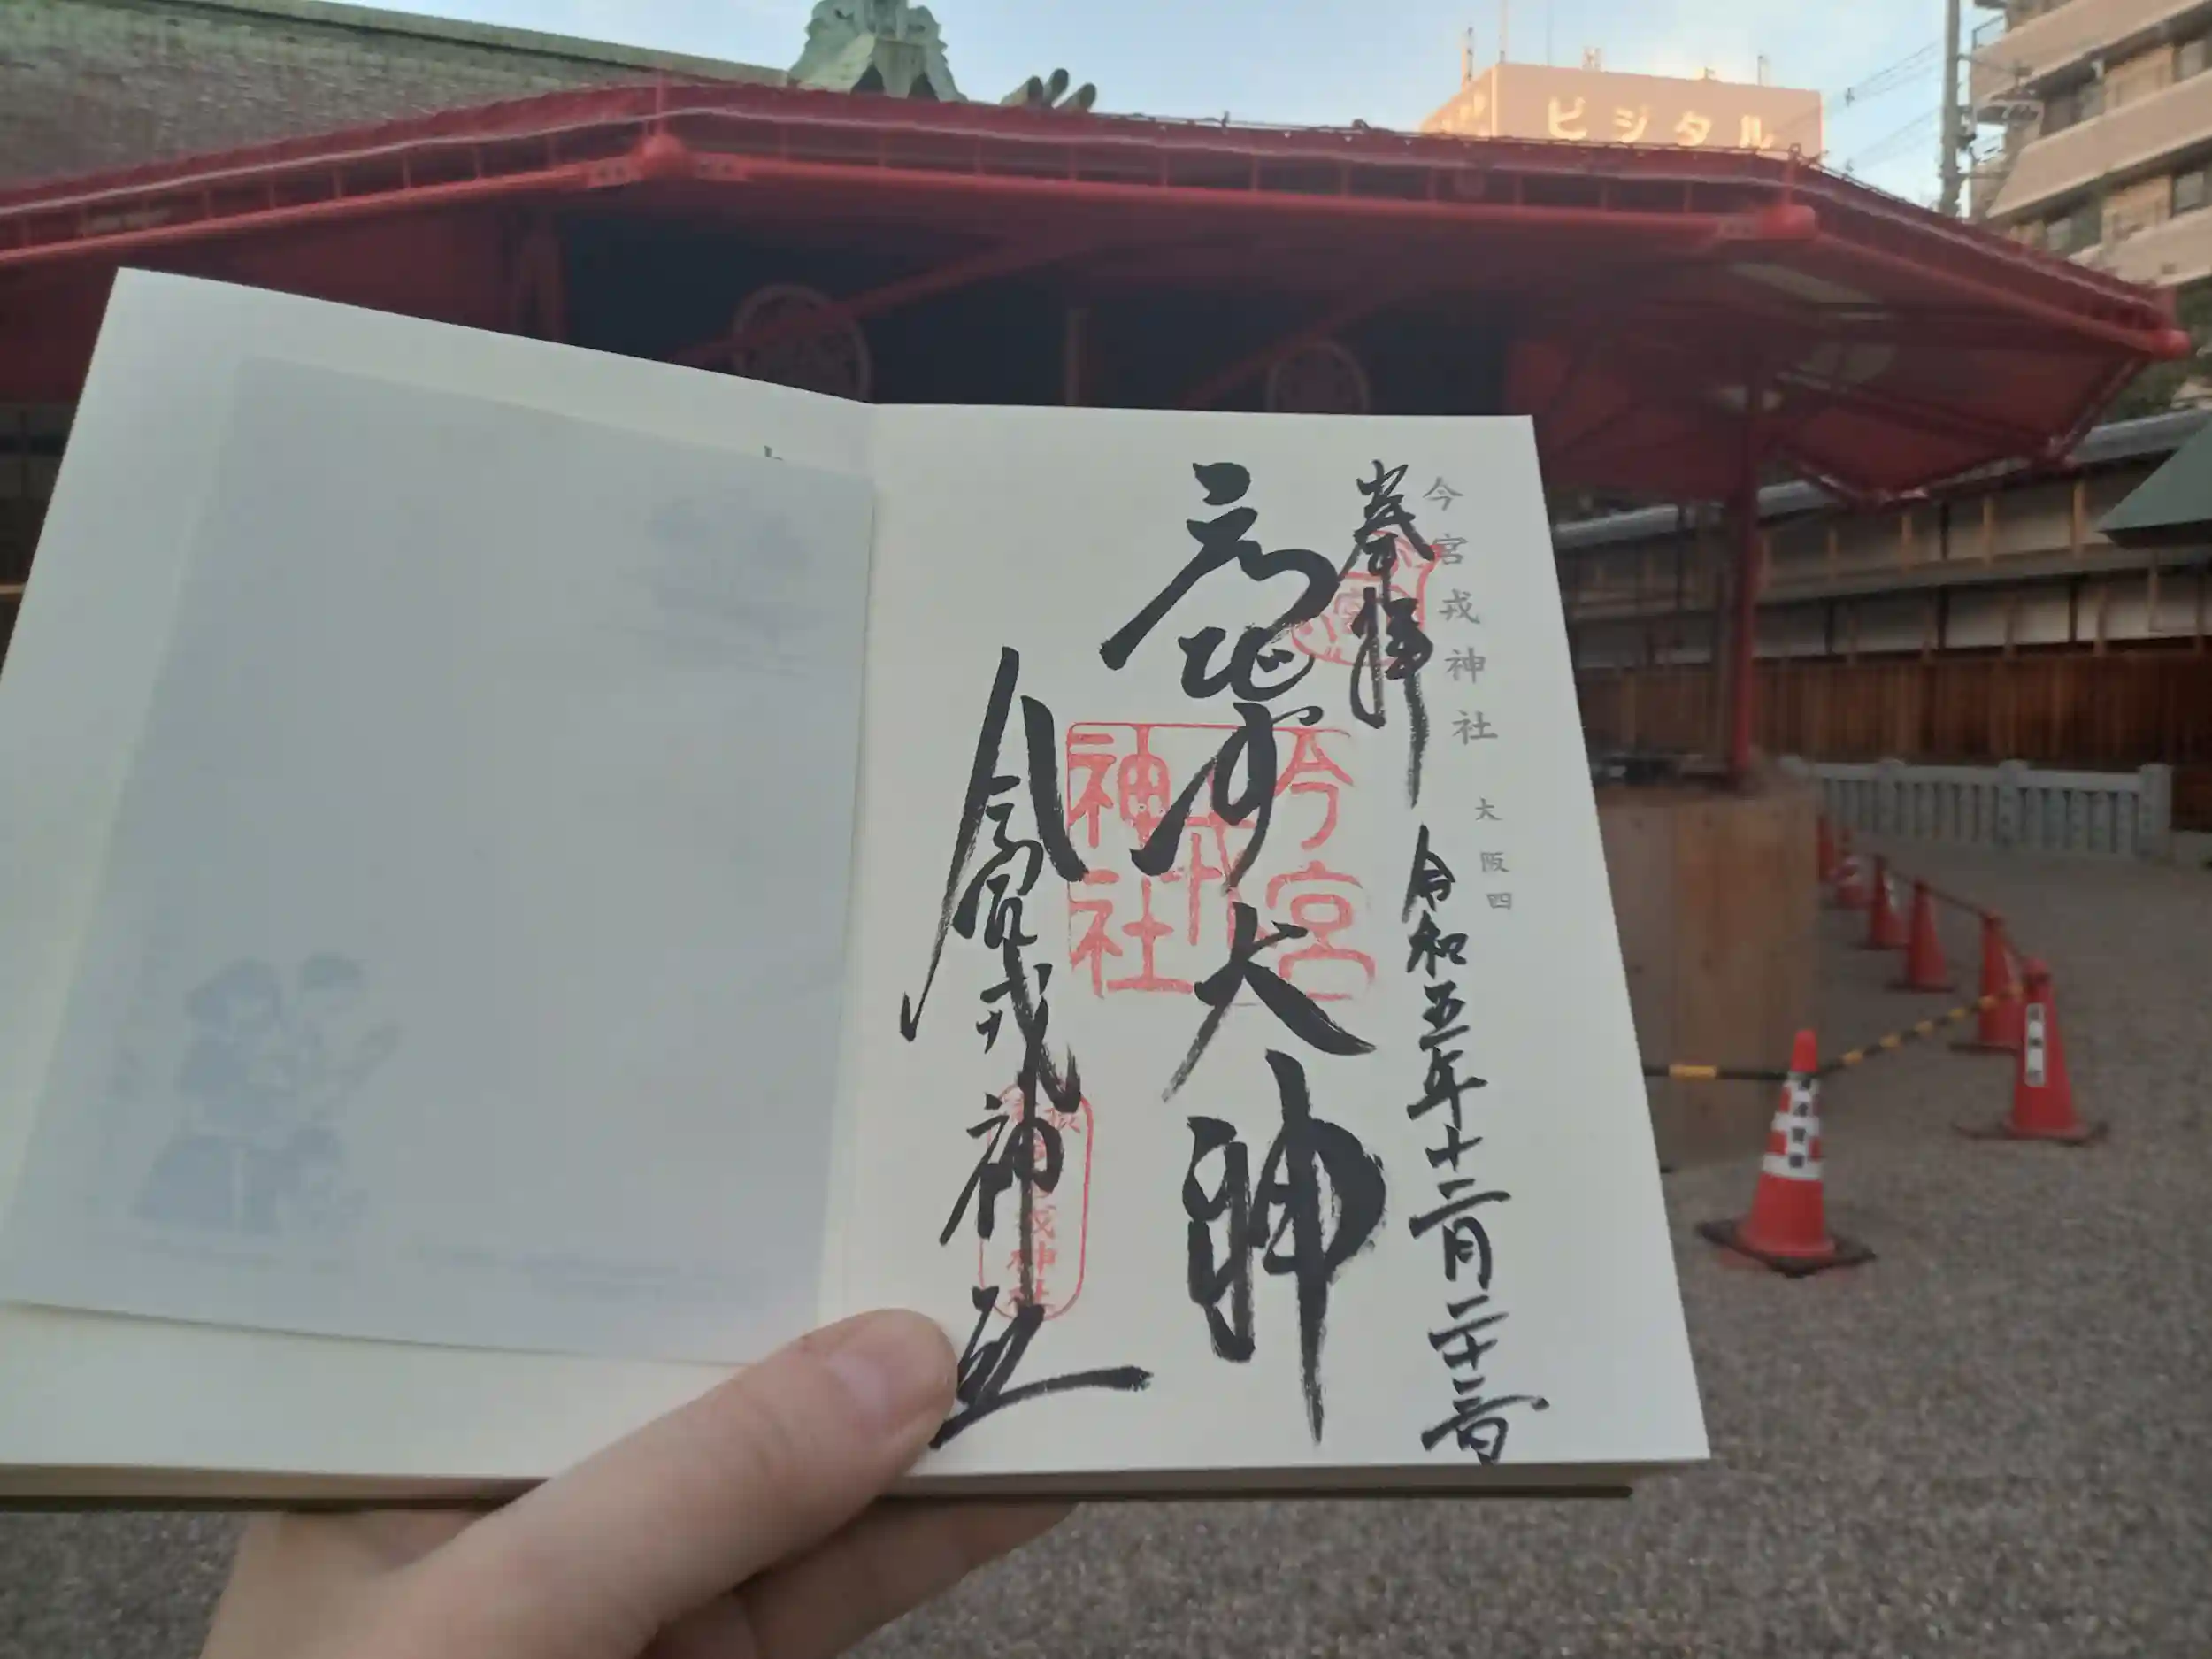 ビジタル
今宮戎神社 大阪四
奉拝
令和五年十二月二十二日
えびす大神
今宮戎神社
今宮戎神社